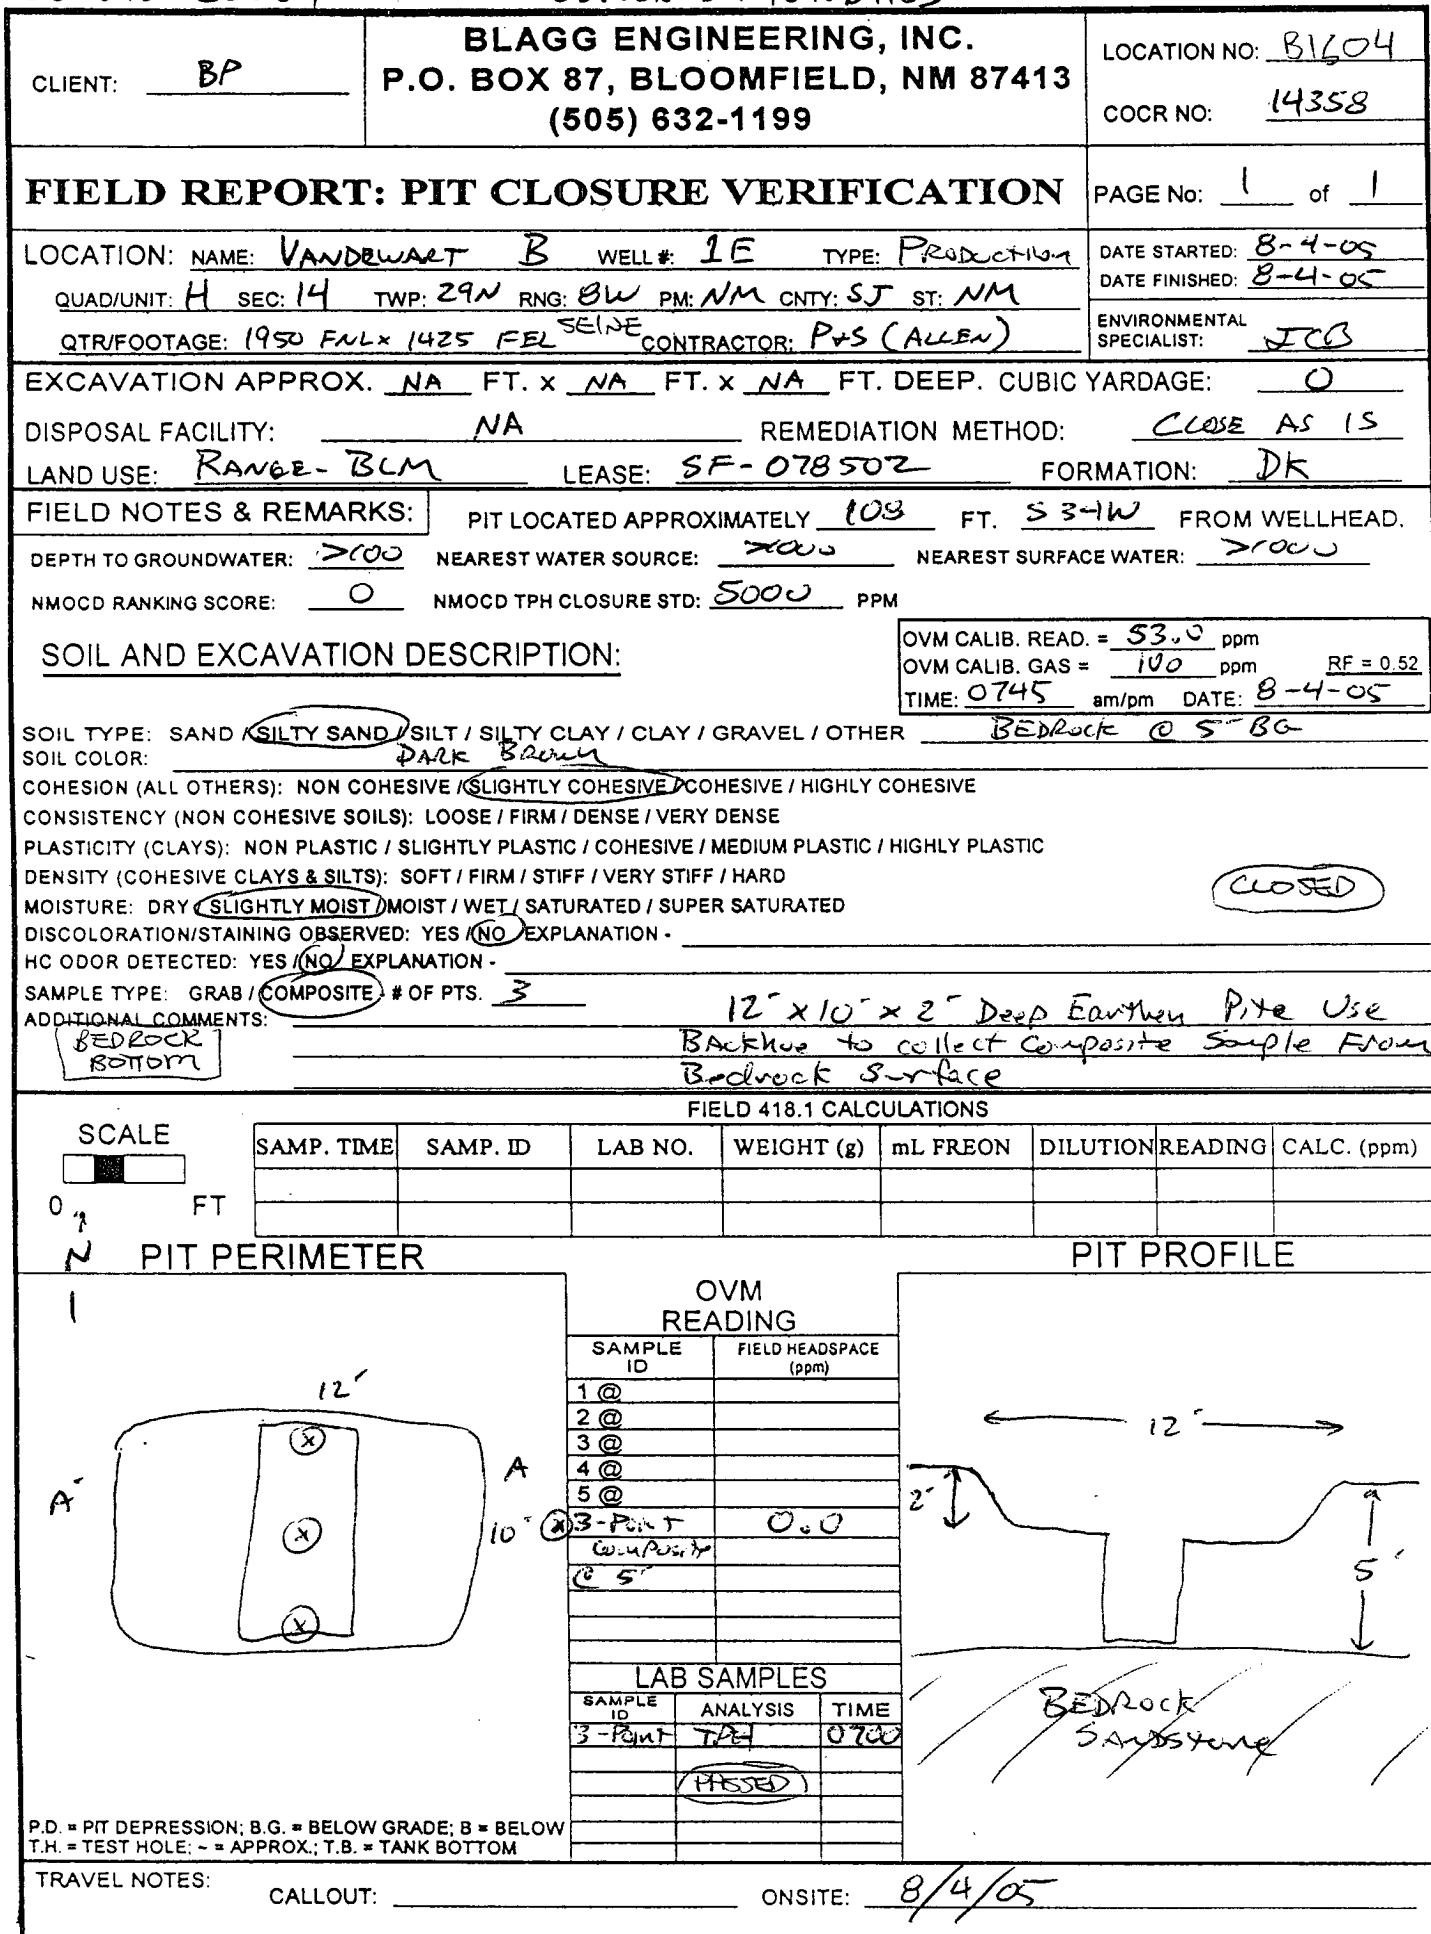 BLAGG ENGINEERING, INC.
P.O. BOX 87, BLOOMFIELD, NM 87413
(505) 632-1199
CLIENT: BP
LOCATION NO: B1604
COCR NO: 14358
FIELD REPORT: PIT CLOSURE VERIFICATION
PAGE No: 1 of 1
LOCATION: NAME: VANDEWART B WELL #: 1E TYPE: PRODUCTION
DATE STARTED: 8-4-05
DATE FINISHED: 8-4-05
QUAD/UNIT: H SEC: 14 TWP: 29N RNG: 8W PM: NM CNTY: SJ ST: NM
QTR/FOOTAGE: 1950 FNL x 1425 FEL SE/NE CONTRACTOR: P+S (ALLEN)
ENVIRONMENTAL SPECIALIST: JCB
EXCAVATION APPROX. NA FT. x NA FT. x NA FT. DEEP. CUBIC YARDAGE: 0
DISPOSAL FACILITY: NA REMEDIATION METHOD: CLOSE AS IS
LAND USE: RANGE - BLM LEASE: SF-078502 FORMATION: DK
FIELD NOTES & REMARKS: PIT LOCATED APPROXIMATELY 108 FT. S34W FROM WELLHEAD.
DEPTH TO GROUNDWATER: >100 NEAREST WATER SOURCE: >1000 NEAREST SURFACE WATER: >1000
NMOCD RANKING SCORE: 0 NMOCD TPH CLOSURE STD: 5000 PPM
SOIL AND EXCAVATION DESCRIPTION:
OVM CALIB. READ. = 53.0 ppm
OVM CALIB. GAS = 100 ppm RF = 0.52
TIME: 0745 am/pm DATE: 8-4-05
SOIL TYPE: SAND / SILTY SAND / SILT / SILTY CLAY / CLAY / GRAVEL / OTHER BEDROCK @ 5' BG
SOIL COLOR: DARK BROWN
COHESION (ALL OTHERS): NON COHESIVE / SLIGHTLY COHESIVE / COHESIVE / HIGHLY COHESIVE
CONSISTENCY (NON COHESIVE SOILS): LOOSE / FIRM / DENSE / VERY DENSE
PLASTICITY (CLAYS): NON PLASTIC / SLIGHTLY PLASTIC / COHESIVE / MEDIUM PLASTIC / HIGHLY PLASTIC
DENSITY (COHESIVE CLAYS & SILTS): SOFT / FIRM / STIFF / VERY STIFF / HARD
CLOSED
MOISTURE: DRY / SLIGHTLY MOIST / MOIST / WET / SATURATED / SUPER SATURATED
DISCOLORATION/STAINING OBSERVED: YES / NO EXPLANATION -
HC ODOR DETECTED: YES / NO EXPLANATION -
SAMPLE TYPE: GRAB / COMPOSITE - # OF PTS. 3
ADDITIONAL COMMENTS: 12' x 10' x 2' Deep Earthen Pit. Use
BEDROCK BOTTOM
Backhoe to collect Composite Sample From
Bedrock Surface
FIELD 418.1 CALCULATIONS
SCALE
0 FT
SAMP. TIME SAMP. ID LAB NO. WEIGHT (g) mL FREON DILUTION READING CALC. (ppm)
N
PIT PERIMETER
PIT PROFILE
OVM READING
SAMPLE ID FIELD HEADSPACE (ppm)
1 @
2 @
3 @
4 @
5 @
3-Point 0.0
Composite
@ 5'
12'
A'
A
10'
12'
2'
5'
BEDROCK
SANDSTONE
LAB SAMPLES
SAMPLE ID ANALYSIS TIME
3-Point TPH 0700
PASSED
P.D. = PIT DEPRESSION; B.G. = BELOW GRADE; B = BELOW
T.H. = TEST HOLE; ~ = APPROX.; T.B. = TANK BOTTOM
TRAVEL NOTES: CALLOUT: ONSITE: 8/4/05